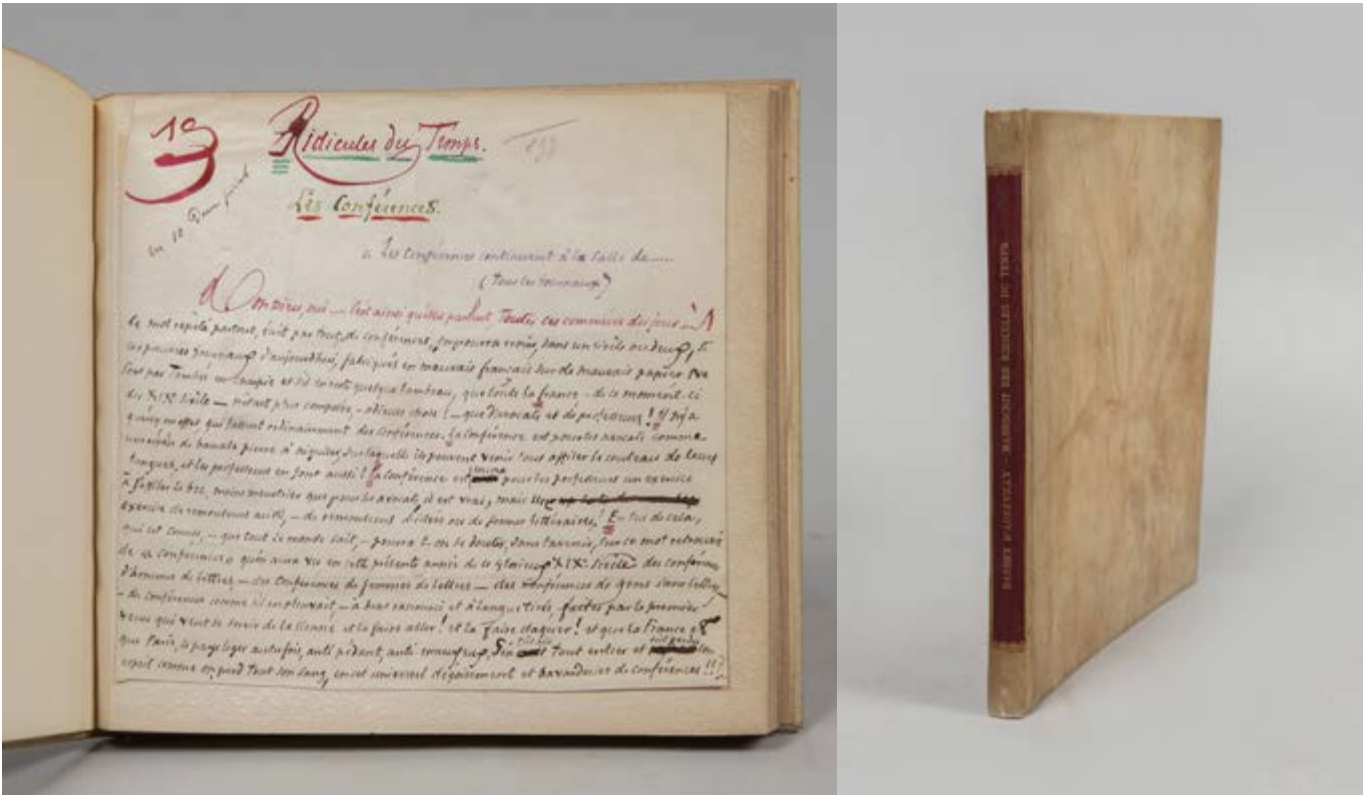 19
Ridicules du Temps.
Les Conférences.
« Les Conférences continuent à la Salle de .....
(Tous les journaux)
oui ... C'est ainsi qu'elles parlent Toutes ces commères du jour ... À
le mot répété partout, écrit partout, de conférences, on pourra croire, dans un siècle ou deux, si
ces pauvres journaux d'aujourd'hui, fabriqués en mauvais français sur de mauvais papier ne
sont pas Tombés en et s'il en reste quelque lambeau, que toute la france – de ce moment ci
du XIXe Siècle — n'était plus composée, – odieuse chose ! – que d'avocats et de professeurs ! Il n'y a
guères en effet qui fassent ordinairement des Conférences. La Conférence est pour les avocats comme
une de banale pierre à aiguiser, sur laquelle ils peuvent venir tous affiler le couteau de leurs
langues, et les professeurs en font aussi ! La Conférence est pour les professeurs un exercice
à s'affiler le bec, moins meurtrier que pour les avocats, il est vrai, mais
exercice de remouleurs aussi, – de remouleurs d'idées ou de formes littéraires ! En sus de cela,
qui est connu, – que tout le monde sait, – pourra-t-on se douter, dans l'avenir, sur ce mot retrouvé
de « conférences » qu'on aura vu en cette présente année de ce glorieux XIXe Siècle des conférences
d'hommes de lettres — des Conférences de femmes de lettres — des conférences de gens sans lettres
– des conférences comme s'il en pleuvait – à bras raccourci et à langue tirée, faites par le premier
venu qui veut se servir de la sienne et la faire aller ! et la faire claquer ! et que la France et
que Paris, le pays léger autrefois, anti pédant, anti ennuyeux, s'en est tout entier et son
esprit comme on perd tout son sang, en cet universel dégoisement et bavarderies de conférences !!
BARBEY D'AUREVILLY - MANUSCRIT DES RIDICULES DU TEMPS